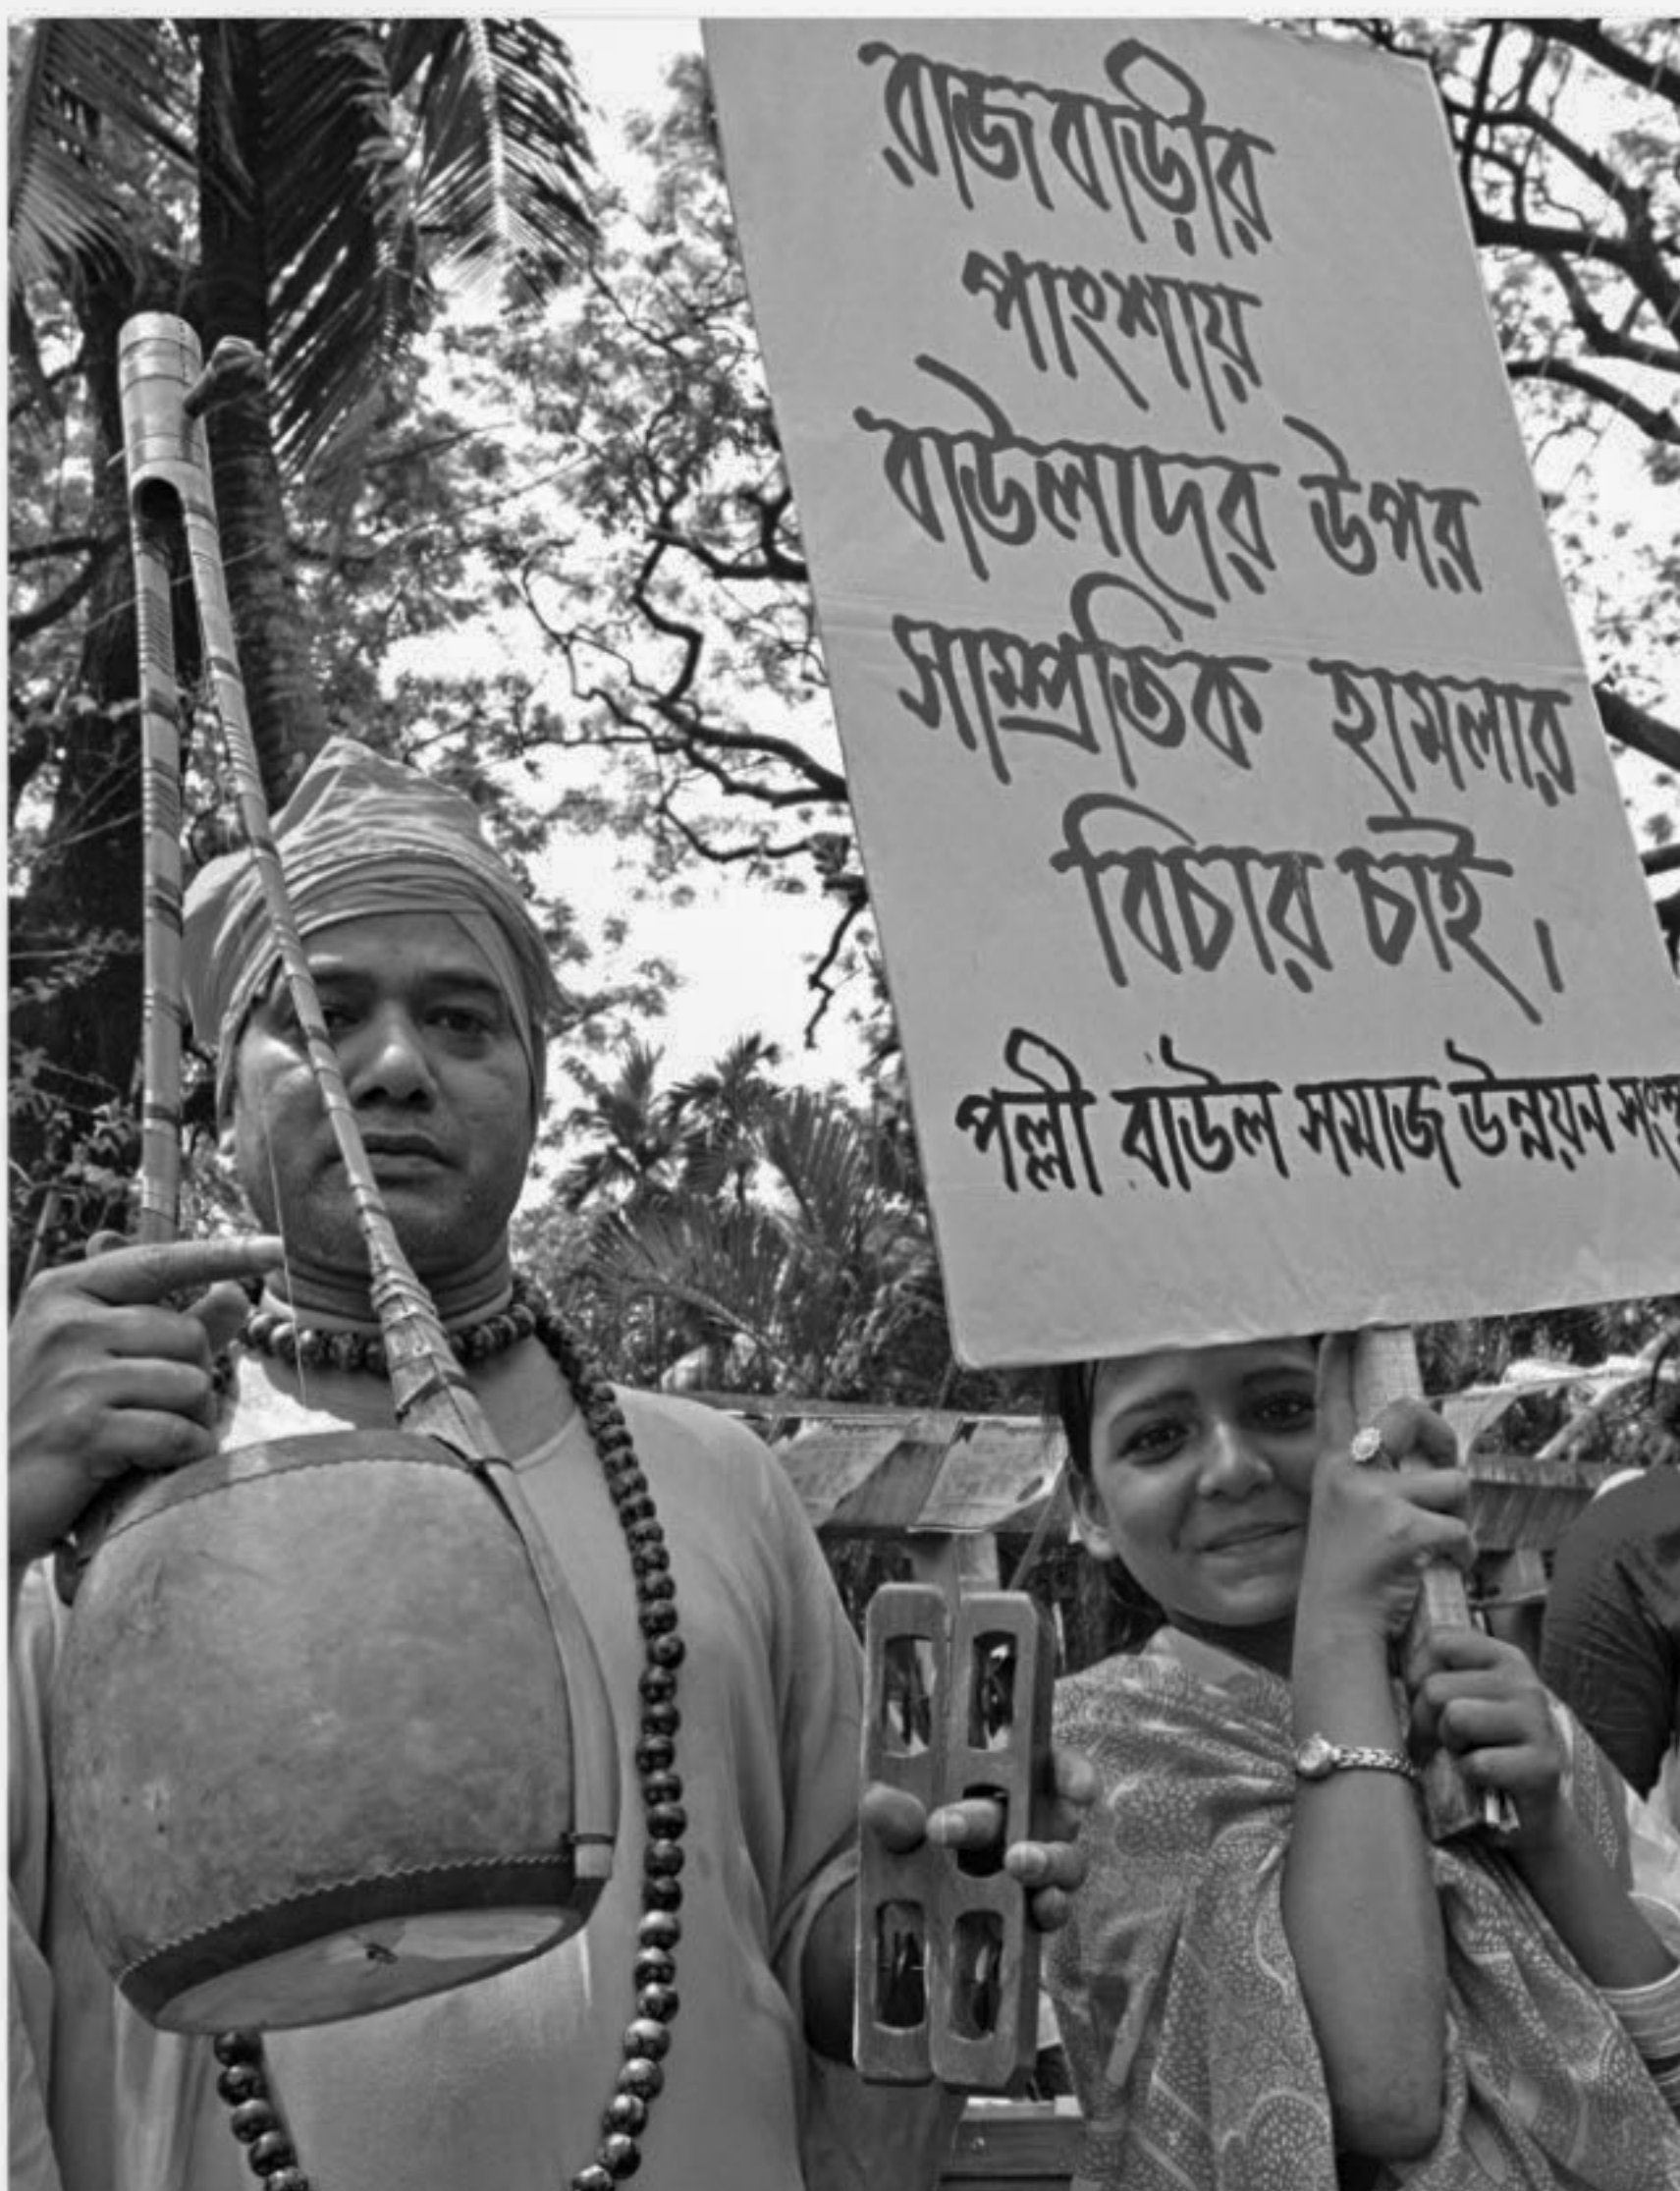 রাজবাড়ীর
পাংশায়
বাউলদের উপর
সাম্প্রতিক হামলার
বিচার চাই।
পল্লী বাউল সমাজ উন্নয়ন